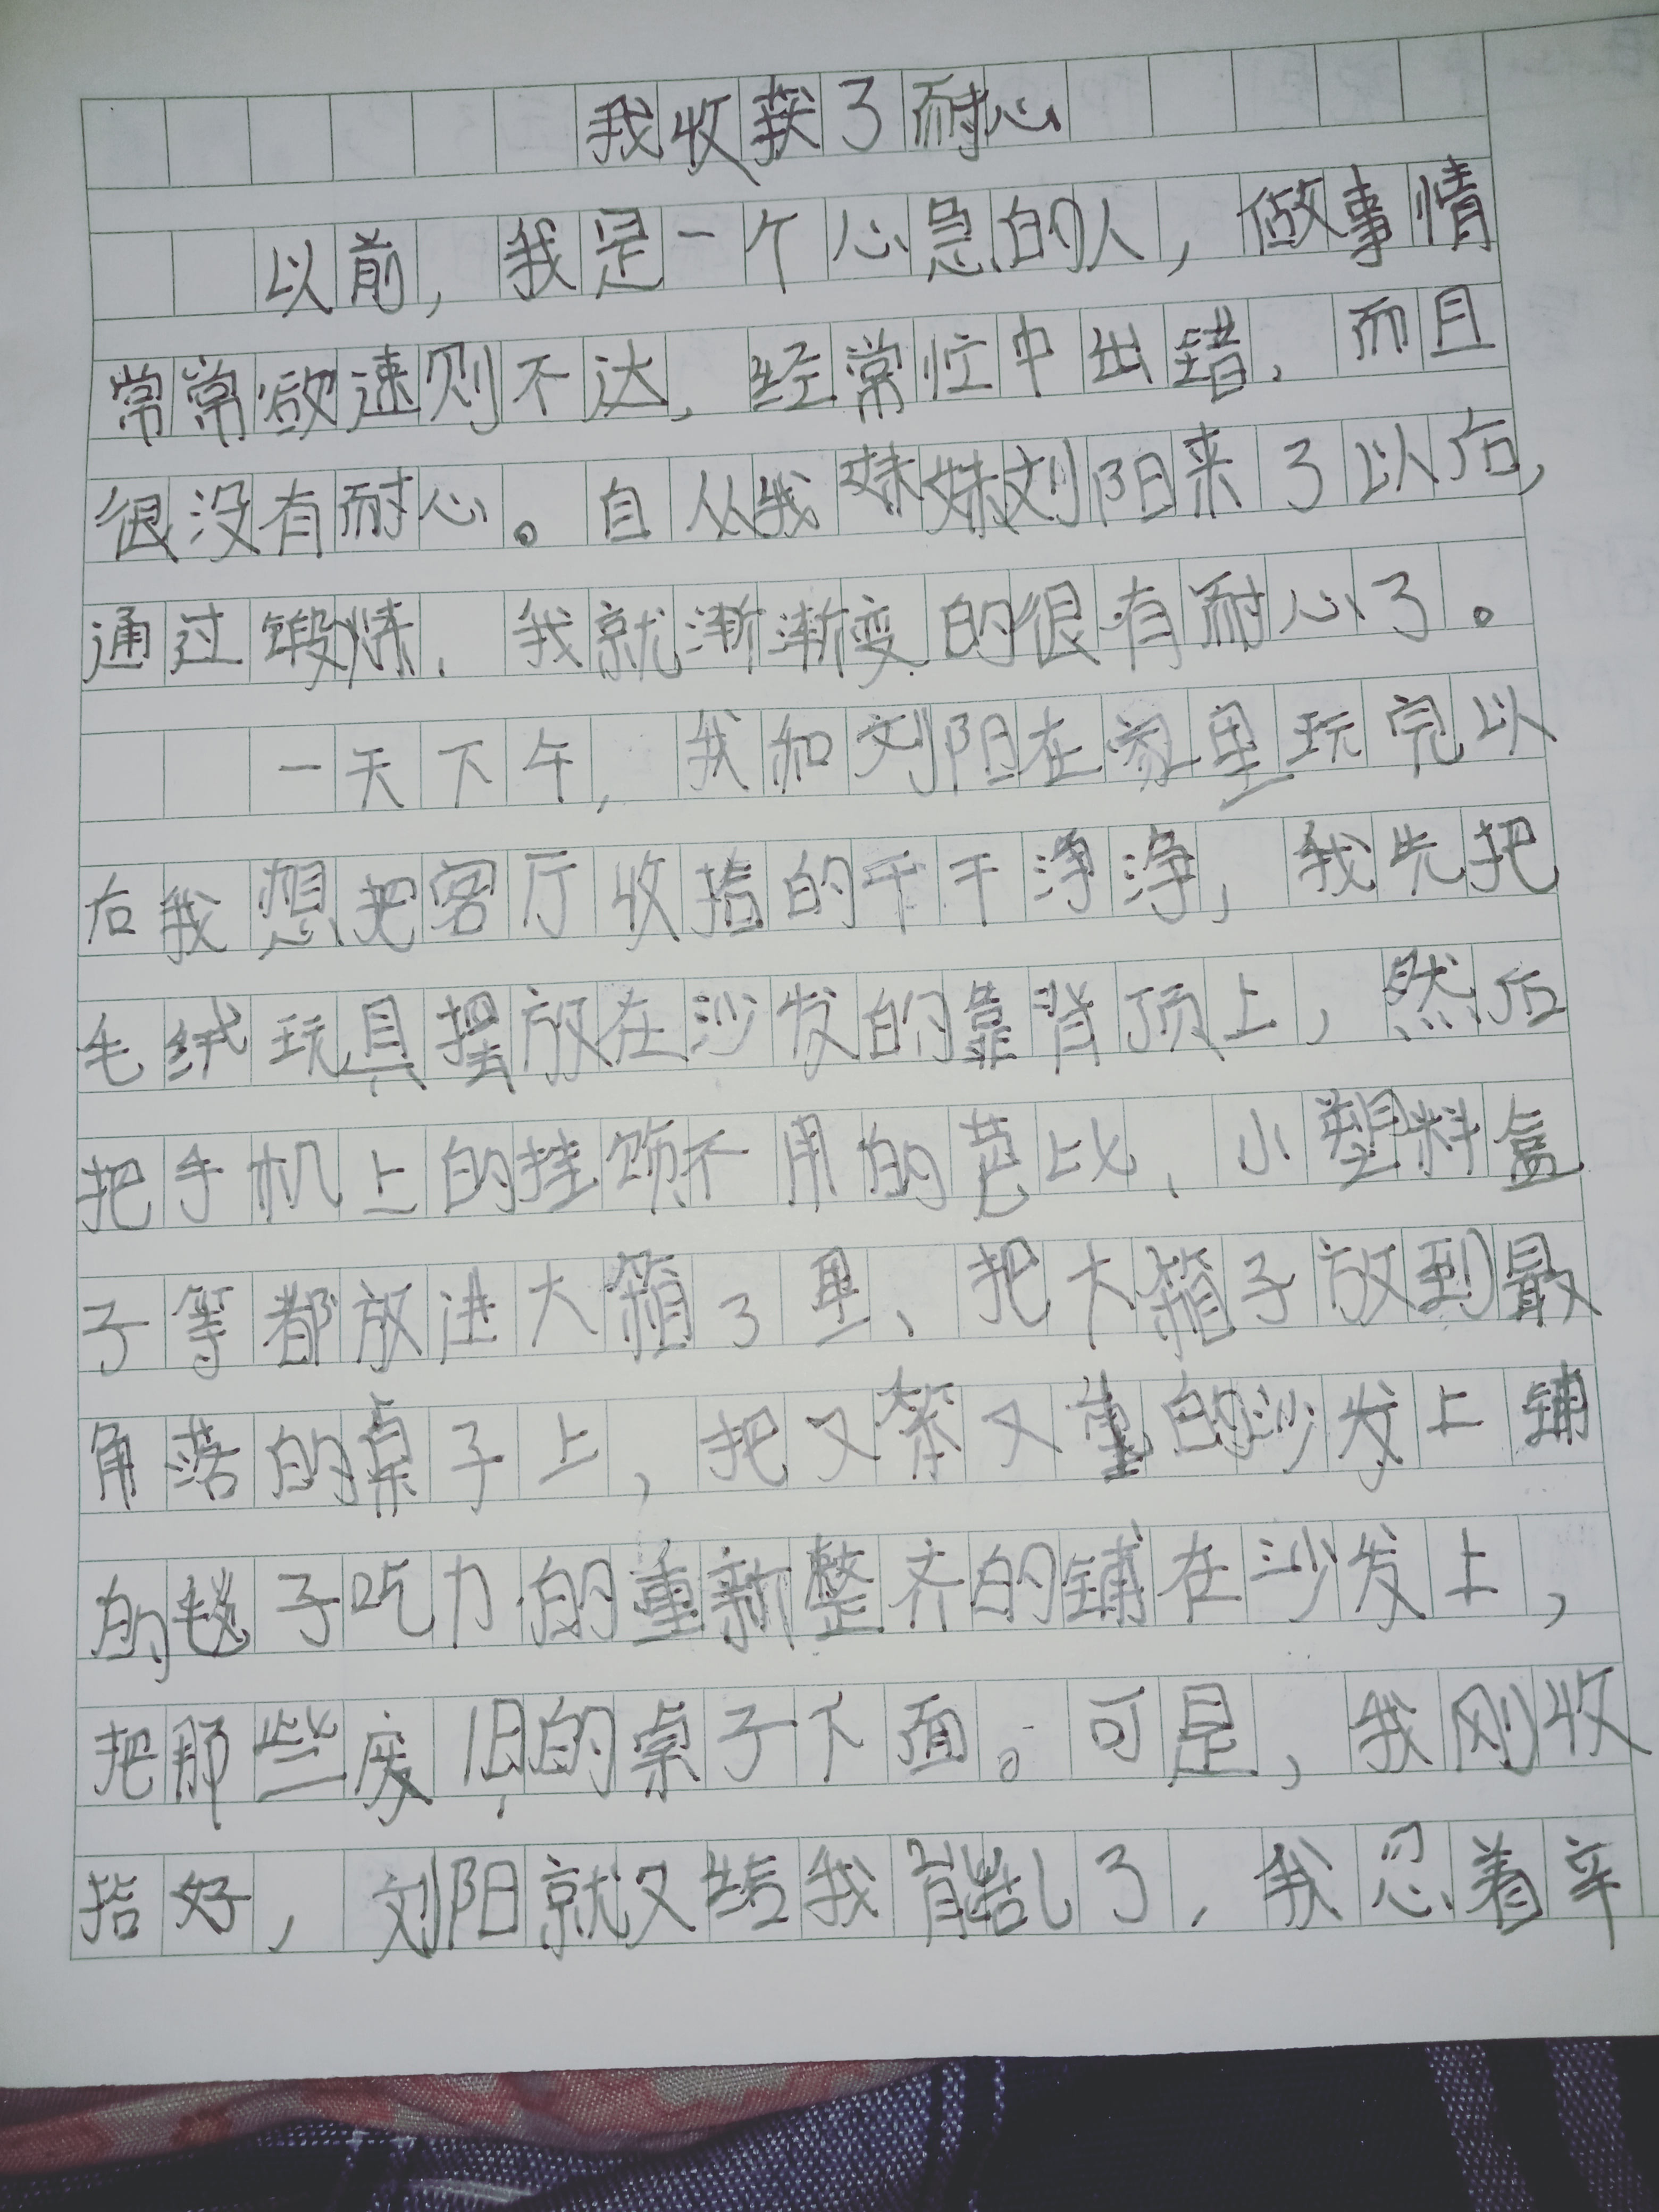 我收获了耐心
以前，我是一个心急的人，做事情
常常欲速则不达，经常忙中出错，而且
很没有耐心。自从我妹妹刘阳来了以后，
通过锻炼，我就渐渐变的很有耐心了。
一天下午，我和刘阳在家里玩完以
后我想把客厅收拾的干干净净，我先把
毛绒玩具摆放在沙发的靠背顶上，然后
把手机上的挂饰不用的芭比、小塑料盒
子等都放进大箱子里、把大箱子放到最
角落的桌子上，把又笨又重的沙发上铺
的毯子吃力的重新整齐的铺在沙发上，
把那些废旧的桌子下面。可是，我刚收
拾好，刘阳就又给我乱了，我忍着辛